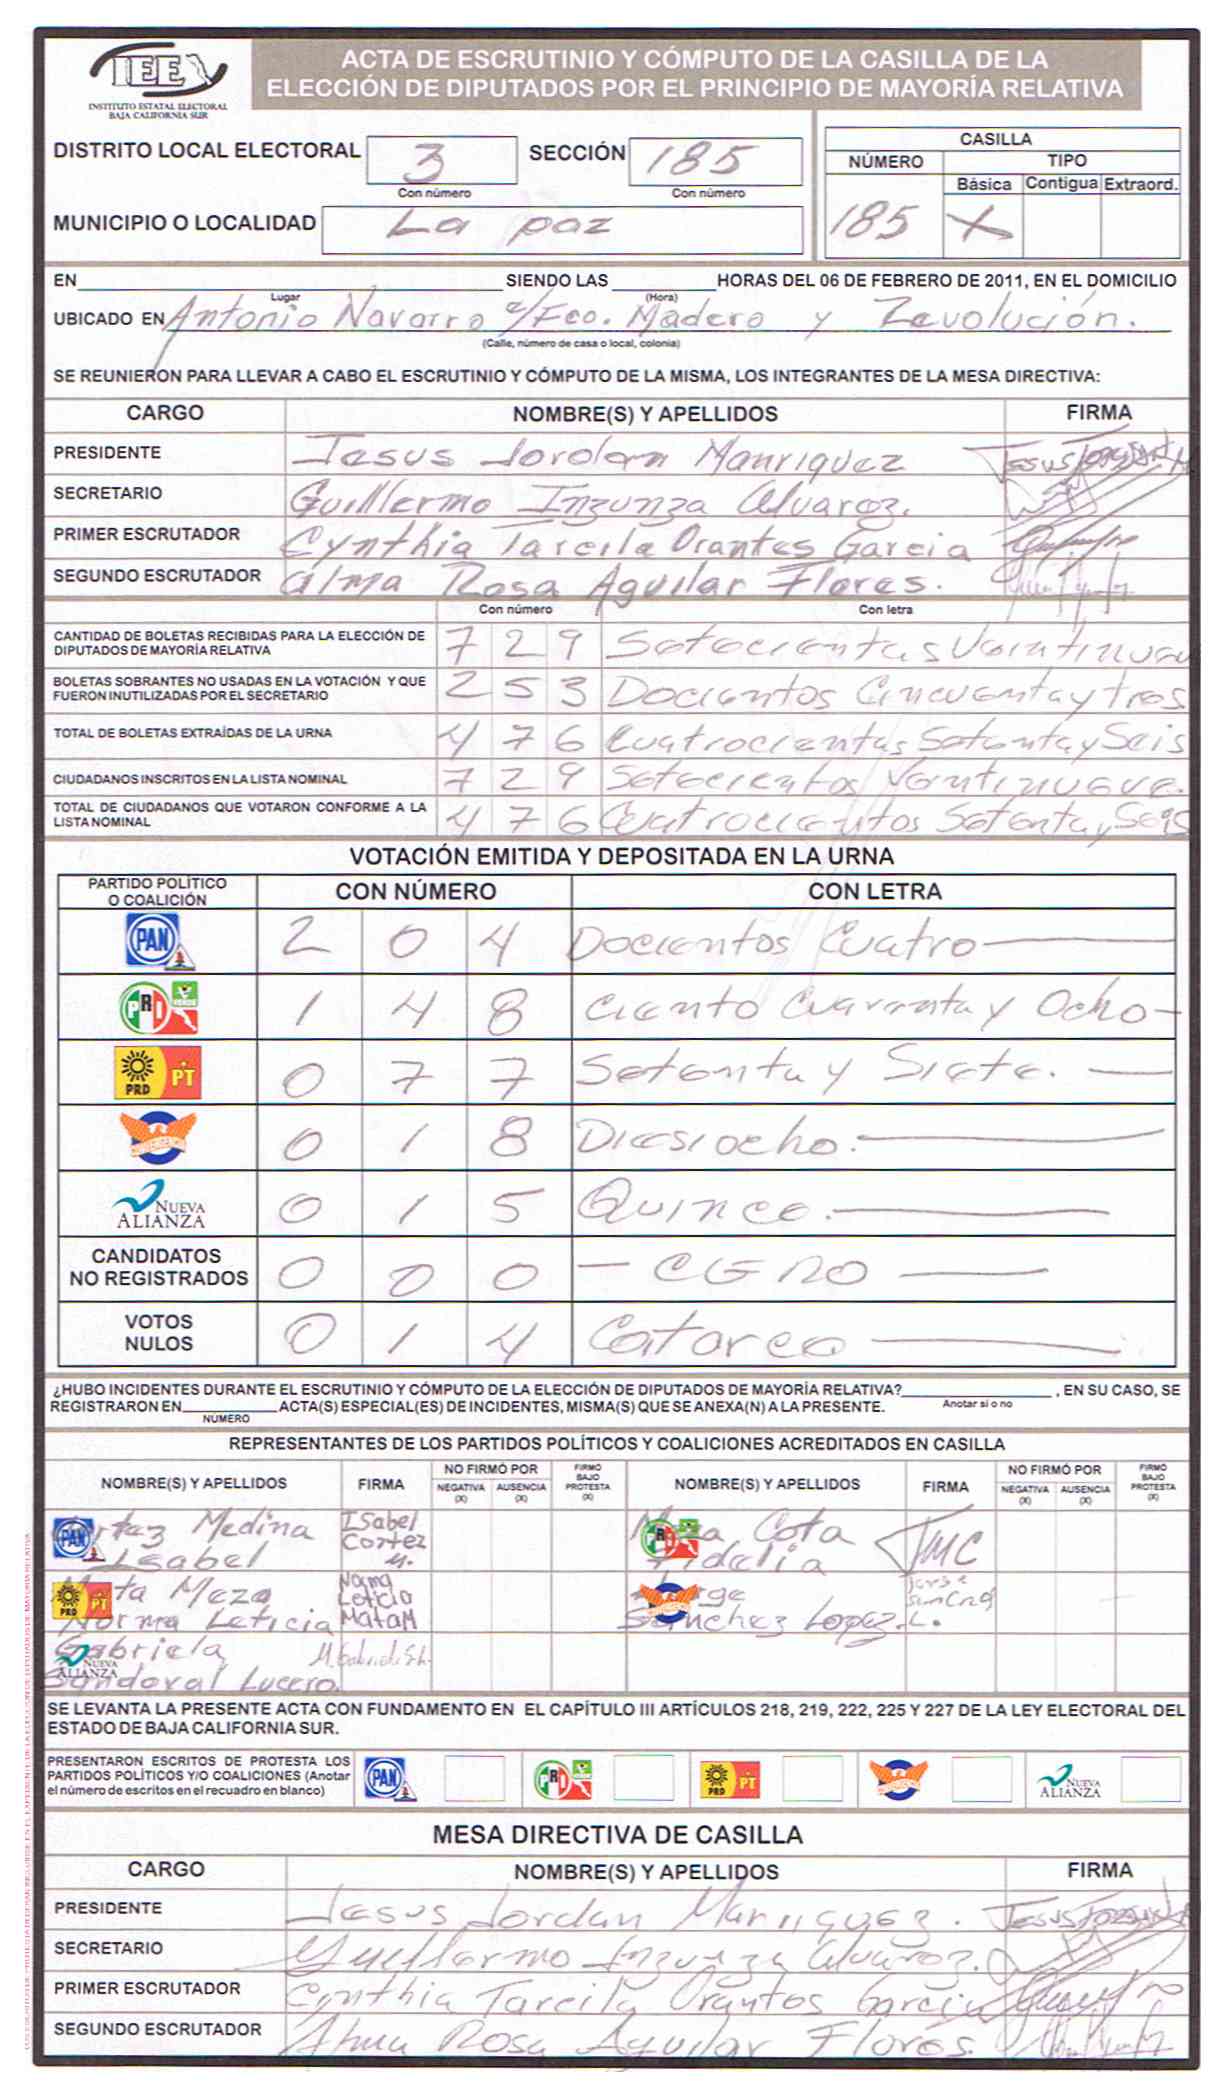 IEE
INSTITUTO ESTATAL ELECTORAL
BAJA CALIFORNIA SUR
ACTA DE ESCRUTINIO Y CÓMPUTO DE LA CASILLA DE LA
ELECCIÓN DE DIPUTADOS POR EL PRINCIPIO DE MAYORÍA RELATIVA
DISTRITO LOCAL ELECTORAL 3 SECCIÓN 185
Con número Con número
MUNICIPIO O LOCALIDAD La paz
CASILLA
NÚMERO TIPO
Básica Contigua Extraord.
185 X
EN SIENDO LAS HORAS DEL 06 DE FEBRERO DE 2011, EN EL DOMICILIO
Lugar (Hora)
UBICADO EN Antonio Navarro e/Fco. Madero y Revolución.
(Calle, número de casa o local, colonia)
SE REUNIERON PARA LLEVAR A CABO EL ESCRUTINIO Y CÓMPUTO DE LA MISMA, LOS INTEGRANTES DE LA MESA DIRECTIVA:
CARGO NOMBRE(S) Y APELLIDOS FIRMA
PRESIDENTE Jesus Jordan Manriquez
SECRETARIO Guillermo Inzunza Alvarez.
PRIMER ESCRUTADOR Cynthia Tarcila Orantes Garcia
SEGUNDO ESCRUTADOR Alma Rosa Aguilar Flores.
Con número Con letra
CANTIDAD DE BOLETAS RECIBIDAS PARA LA ELECCIÓN DE
DIPUTADOS DE MAYORÍA RELATIVA 7 2 9 Setecientas Veintinueve
BOLETAS SOBRANTES NO USADAS EN LA VOTACIÓN Y QUE
FUERON INUTILIZADAS POR EL SECRETARIO 2 5 3 Docientos Cincuenta y tres
TOTAL DE BOLETAS EXTRAÍDAS DE LA URNA 4 7 6 Cuatrocientas Setenta y Seis
CIUDADANOS INSCRITOS EN LA LISTA NOMINAL 7 2 9 Setecientos Veintinueve.
TOTAL DE CIUDADANOS QUE VOTARON CONFORME A LA
LISTA NOMINAL 4 7 6 Cuatrocientos Setenta y Seis
VOTACIÓN EMITIDA Y DEPOSITADA EN LA URNA
PARTIDO POLÍTICO
O COALICIÓN CON NÚMERO CON LETRA
PAN 2 0 4 Docientos Cuatro
PRI VERDE 1 4 8 Ciento Cuarenta y Ocho
PRD PT 0 7 7 Setenta y Siete.
CONVERGENCIA 0 1 8 Diesiocho.
NUEVA ALIANZA 0 1 5 Quince.
CANDIDATOS
NO REGISTRADOS 0 0 0 - CERO
VOTOS
NULOS 0 1 4 Catorce
¿HUBO INCIDENTES DURANTE EL ESCRUTINIO Y CÓMPUTO DE LA ELECCIÓN DE DIPUTADOS DE MAYORÍA RELATIVA? , EN SU CASO, SE
Anotar si o no
REGISTRARON EN ACTA(S) ESPECIAL(ES) DE INCIDENTES, MISMA(S) QUE SE ANEXA(N) A LA PRESENTE.
NÚMERO
REPRESENTANTES DE LOS PARTIDOS POLÍTICOS Y COALICIONES ACREDITADOS EN CASILLA
NOMBRE(S) Y APELLIDOS FIRMA NO FIRMÓ POR NEGATIVA (X) AUSENCIA (X) FIRMÓ BAJO PROTESTA (X) NOMBRE(S) Y APELLIDOS FIRMA NO FIRMÓ POR NEGATIVA (X) AUSENCIA (X) FIRMÓ BAJO PROTESTA (X)
PAN Medina Isabel Isabel Cortez M. PRI Cota Fidelia JMC
PRD PT Mata Meza Norma Leticia Norma Leticia Mata M Jorge Sanchez Lopez.
NUEVA ALIANZA Gabriela Sandoval Lucero.
SE LEVANTA LA PRESENTE ACTA CON FUNDAMENTO EN EL CAPÍTULO III ARTÍCULOS 218, 219, 222, 225 Y 227 DE LA LEY ELECTORAL DEL
ESTADO DE BAJA CALIFORNIA SUR.
PRESENTARON ESCRITOS DE PROTESTA LOS
PARTIDOS POLÍTICOS Y/O COALICIONES (Anotar
el número de escritos en el recuadro en blanco) PAN PRI PRD PT NUEVA ALIANZA
MESA DIRECTIVA DE CASILLA
CARGO NOMBRE(S) Y APELLIDOS FIRMA
PRESIDENTE Jesus Jordan Manriquez.
SECRETARIO Guillermo Inzunza Alvarez.
PRIMER ESCRUTADOR Cynthia Tarcila Orantes Garcia
SEGUNDO ESCRUTADOR Alma Rosa Aguilar Flores.